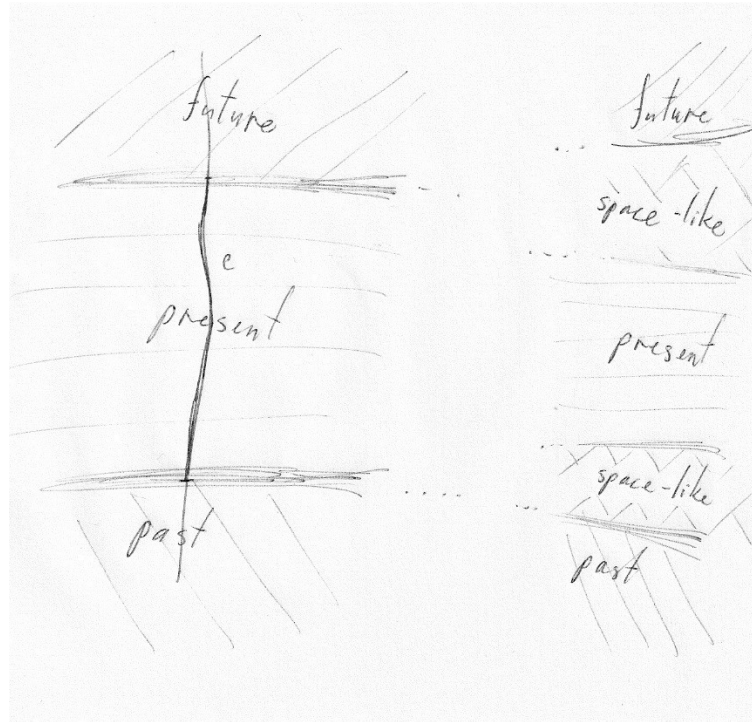 future
c
present
past
future
space-like
present
space-like
past